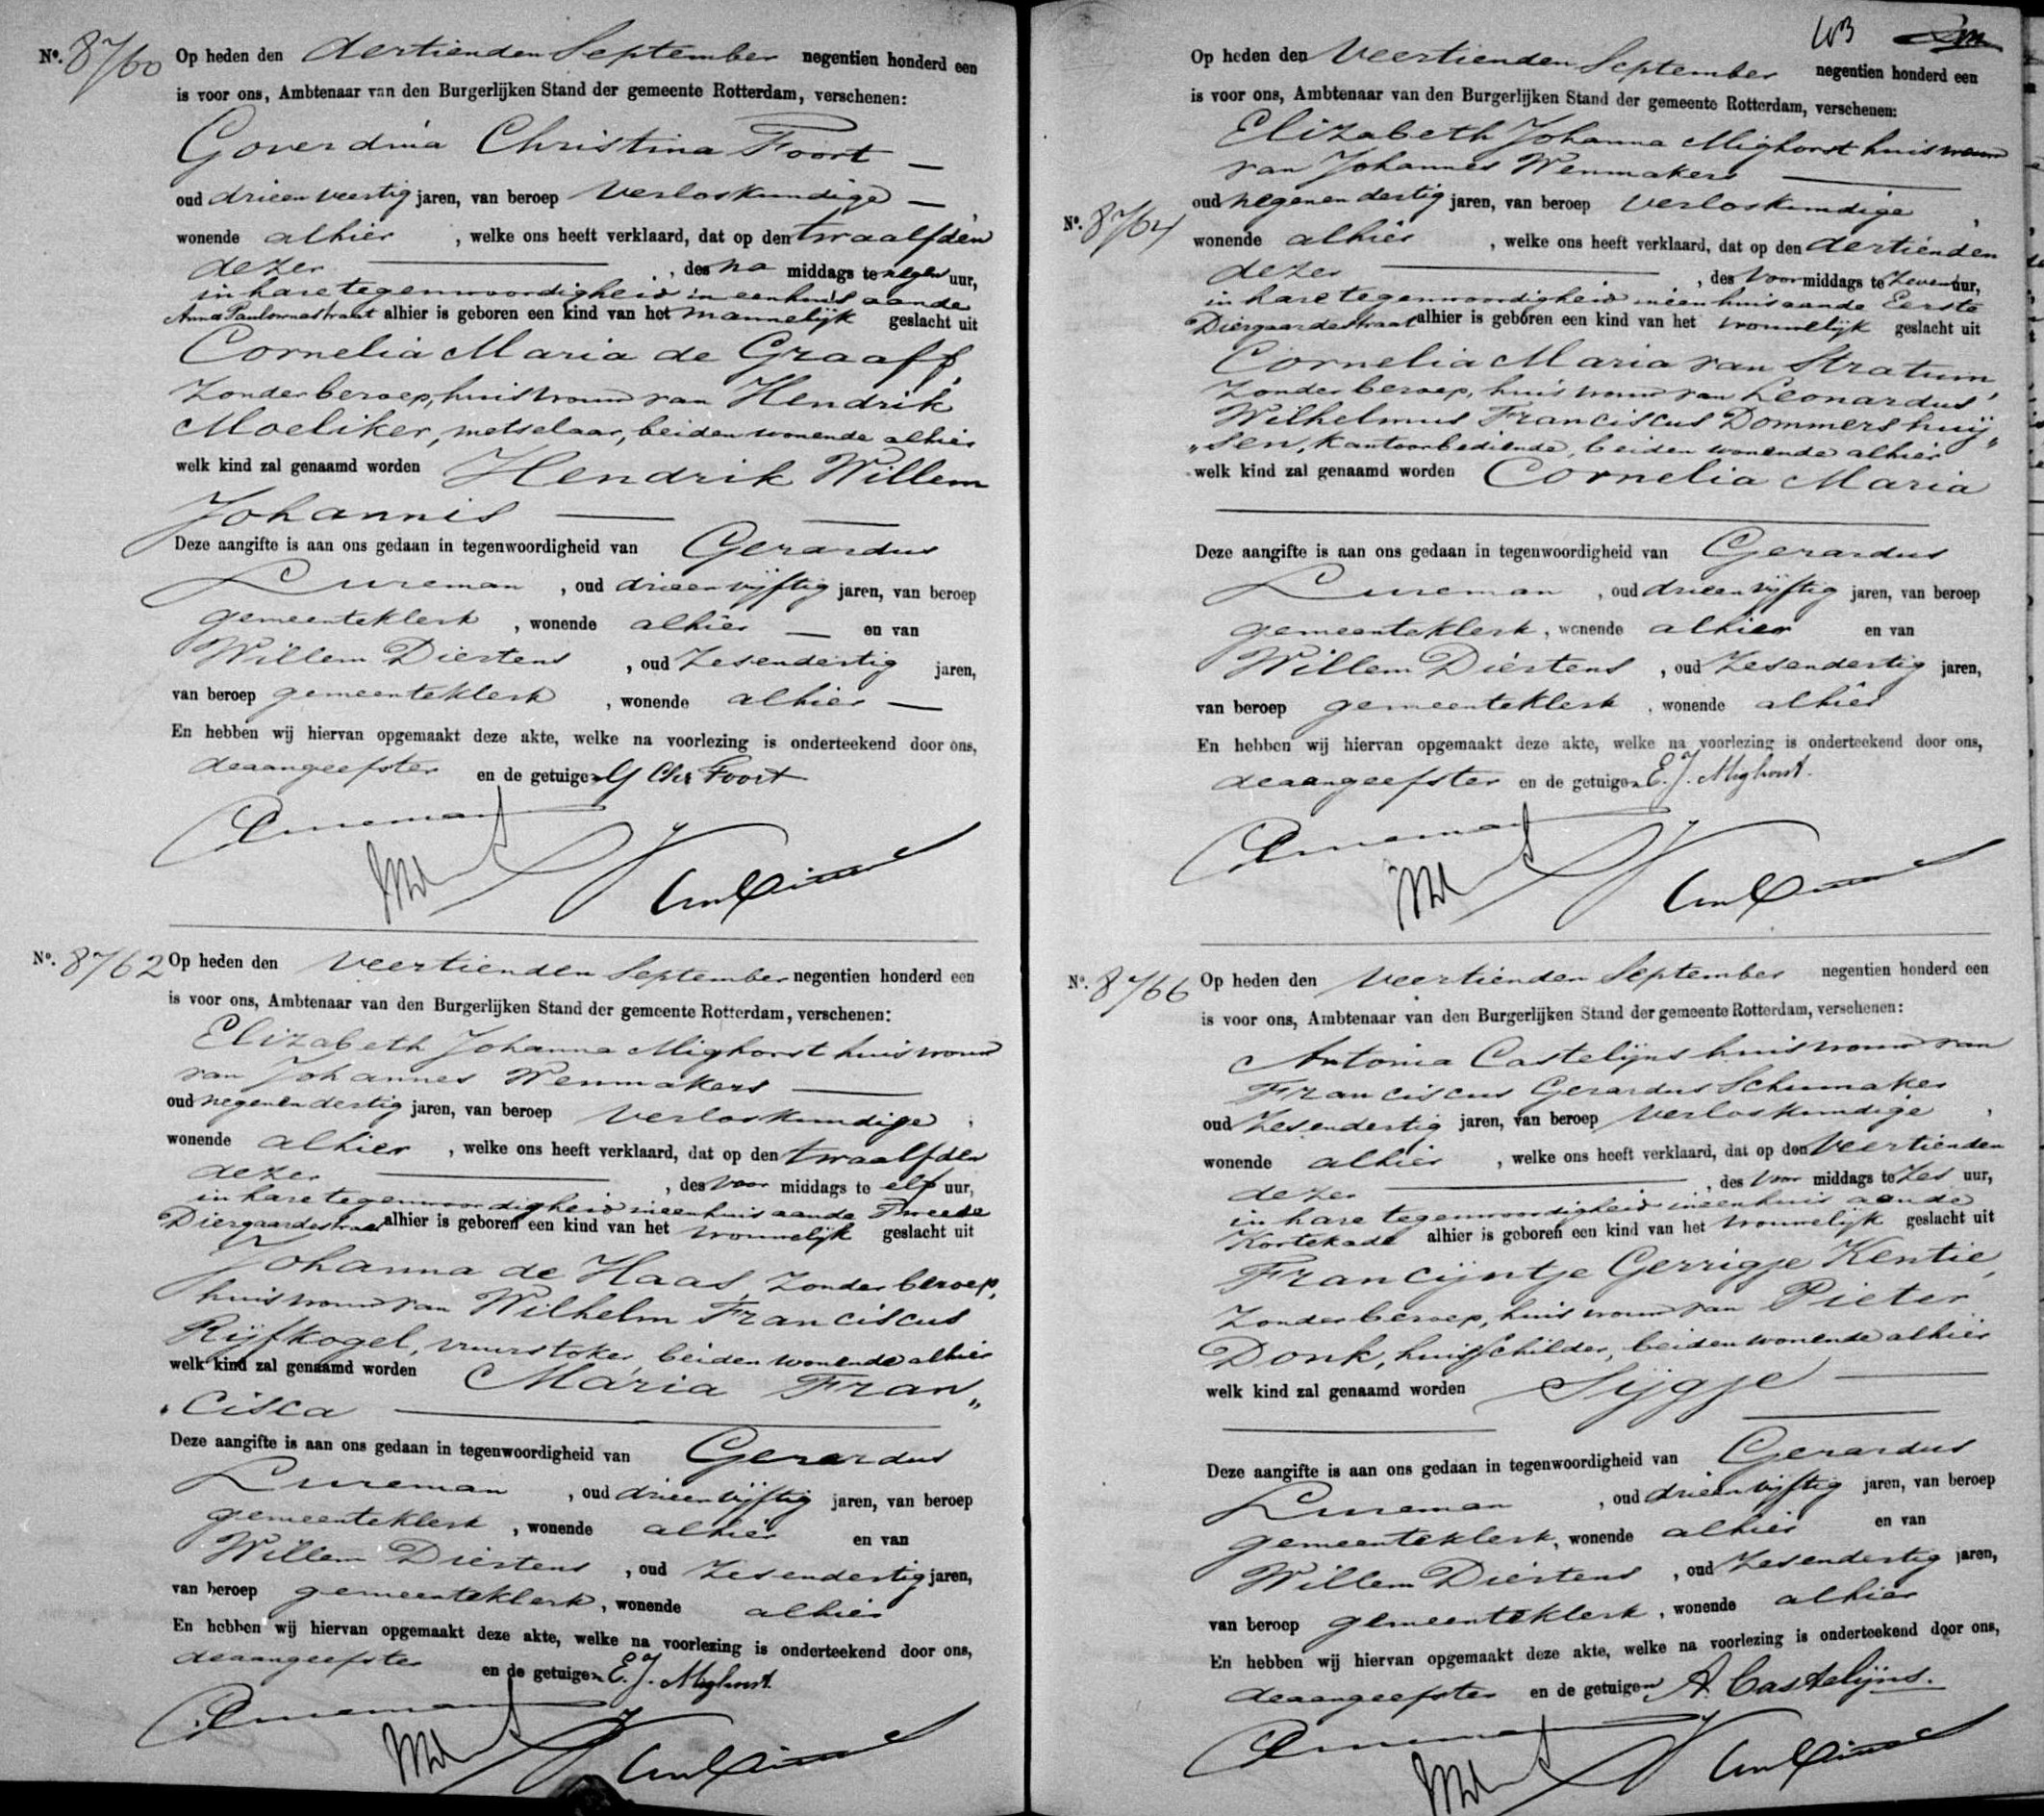 No. 8760 Op heden den dertienden September negentien honderd een
is voor ons, Ambtenaar van den Burgerlijken Stand der gemeente Rotterdam, verschenen:
Goverdina Christina Foort —
oud drieenveertig jaren, van beroep verloskundige —,
wonende alhier, welke ons heeft verklaard, dat op den twaalfden
dezer —, des na middags te negen uur,
in hare tegenwoordigheid in een huis aan de
Anna Paulownastraat alhier is geboren een kind van het mannelijk geslacht uit
Cornelia Maria de Graaff,
zonder beroep, huisvrouw van Hendrik
Moeliker, metselaar, beiden wonende alhier
welk kind zal genaamd worden Hendrik Willem
Johannis —
Deze aangifte is aan ons gedaan in tegenwoordigheid van Gerardus
Lureman, oud drieenvijftig jaren, van beroep
gemeenteklerk, wonende alhier — en van
Willem Diertens, oud zesendertig jaren,
van beroep gemeenteklerk, wonende alhier —
En hebben wij hiervan opgemaakt deze akte, welke na voorlezing is onderteekend door ons,
de aangeefster en de getuigen G Chr Foort
Lureman
No. 8762 Op heden den veertienden September negentien honderd een
is voor ons, Ambtenaar van den Burgerlijken Stand der gemeente Rotterdam, verschenen:
Elizabeth Johanna Mighorst huisvrouw
van Johannes Wenmakers —
oud negenendertig jaren, van beroep verloskundige,
wonende alhier, welke ons heeft verklaard, dat op den twaalfden
dezer —, des voor middags te elf uur,
in hare tegenwoordigheid in een huis aan de Tweede
Diergaardestraat alhier is geboren een kind van het vrouwelijk geslacht uit
Johanna de Haas, zonder beroep,
huisvrouw van Wilhelm Franciscus
Rijfkogel, vuurstoker, beiden wonende alhier
welk kind zal genaamd worden Maria Fran„
„cisca —
Deze aangifte is aan ons gedaan in tegenwoordigheid van Gerardus
Lureman, oud drieenvijftig jaren, van beroep
gemeenteklerk, wonende alhier en van
Willem Diertens, oud zesendertig jaren,
van beroep gemeenteklerk, wonende alhier
En hebben wij hiervan opgemaakt deze akte, welke na voorlezing is onderteekend door ons,
de aangeefster en de getuigen E. J. Mighorst.
Lureman
103
Op heden den veertienden September negentien honderd een
is voor ons, Ambtenaar van den Burgerlijken Stand der gemeente Rotterdam, verschenen:
Elizabeth Johanna Mighorst huisvrouw
van Johannes Wenmakers —
oud negenendertig jaren, van beroep verloskundige,
No. 8764 wonende alhier, welke ons heeft verklaard, dat op den dertienden
dezer —, des voor middags te zeven uur,
in hare tegenwoordigheid in een huis aan de Eerste
Diergaardestraat alhier is geboren een kind van het vrouwelijk geslacht uit
Cornelia Maria van Stratum,
zonder beroep, huisvrouw van Leonardus
Wilhelmus Franciscus Dommershuij„
„sen, kantoorbediende, beiden wonende alhier
welk kind zal genaamd worden Cornelia Maria
Deze aangifte is aan ons gedaan in tegenwoordigheid van Gerardus
Lureman, oud drieenvijftig jaren, van beroep
gemeenteklerk, wonende alhier en van
Willem Diertens, oud zesendertig jaren,
van beroep gemeenteklerk, wonende alhier
En hebben wij hiervan opgemaakt deze akte, welke na voorlezing is onderteekend door ons,
de aangeefster en de getuigen E. J. Mighorst.
Lureman
No. 8766 Op heden den veertienden September negentien honderd een
is voor ons, Ambtenaar van den Burgerlijken Stand der gemeente Rotterdam, verschenen:
Antonia Castelijns huisvrouw van
Franciscus Gerardus Schumaker
oud zesendertig jaren, van beroep verloskundige,
wonende alhier, welke ons heeft verklaard, dat op den veertienden
dezer —, des voor middags te zes uur,
in hare tegenwoordigheid in een huis aan de
Kortekade alhier is geboren een kind van het vrouwelijk geslacht uit
Francijntje Gerrigje Kentie,
zonder beroep, huisvrouw van Pieter
Donk, huisschilder, beiden wonende alhier
welk kind zal genaamd worden Sijgje —
Deze aangifte is aan ons gedaan in tegenwoordigheid van Gerardus
Lureman, oud drieenvijftig jaren, van beroep
gemeenteklerk, wonende alhier en van
Willem Diertens, oud zesendertig jaren,
van beroep gemeenteklerk, wonende alhier
En hebben wij hiervan opgemaakt deze akte, welke na voorlezing is onderteekend door ons,
de aangeefster en de getuigen A. Castelijns.
Lureman